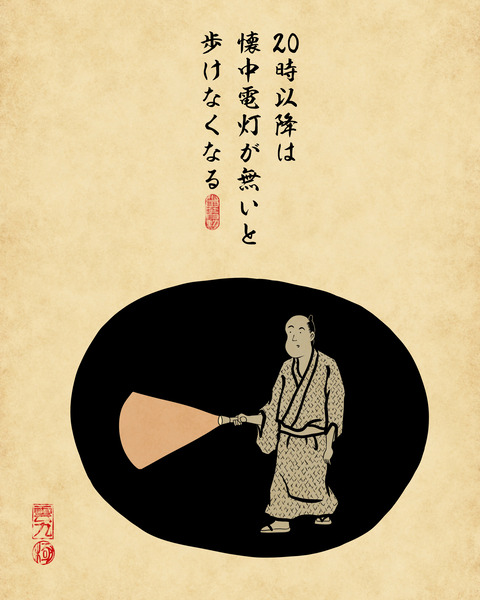 20時以降は
懐中電灯が無いと
歩けなくなる